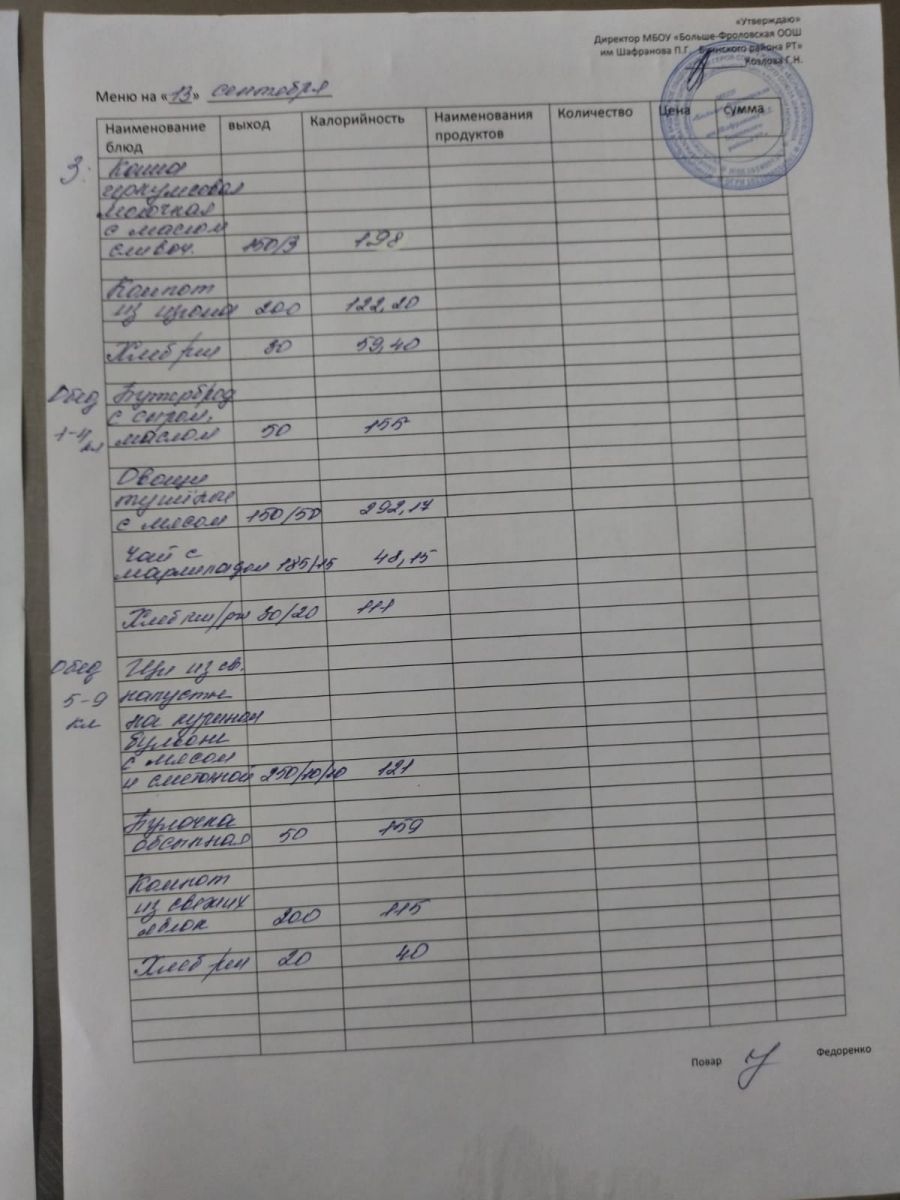 «Утверждаю»
Директор МБОУ «Больше-Фроловская ООШ
им Шафранова П.Г. Буинского района РТ»
Козлова Г.Н.
Меню на «13» сентября
Наименование блюд выход Калорийность Наименования продуктов Количество Цена Сумма
З: Каша
геркулесовая
молочная
с маслом
сливоч. 150/3 198
Компот
из изюма 200 122,20
Хлеб рж 30 59,40
Обед Бутерброд
с сыром,
1-4 кл маслом 50 155
Овощи
тушёные
с мясом 150/50 292,17
Чай с
мармеладом 185/15 48,15
Хлеб пш/рж 30/20 111
Обед Щи из св.
5-9 капусты
кл на курином
бульоне
с мясом
и сметаной 250/10/10 121
Булочка
50 159
Компот
из свежих
яблок 200 115
Хлеб рж 20 40
Повар Федоренко